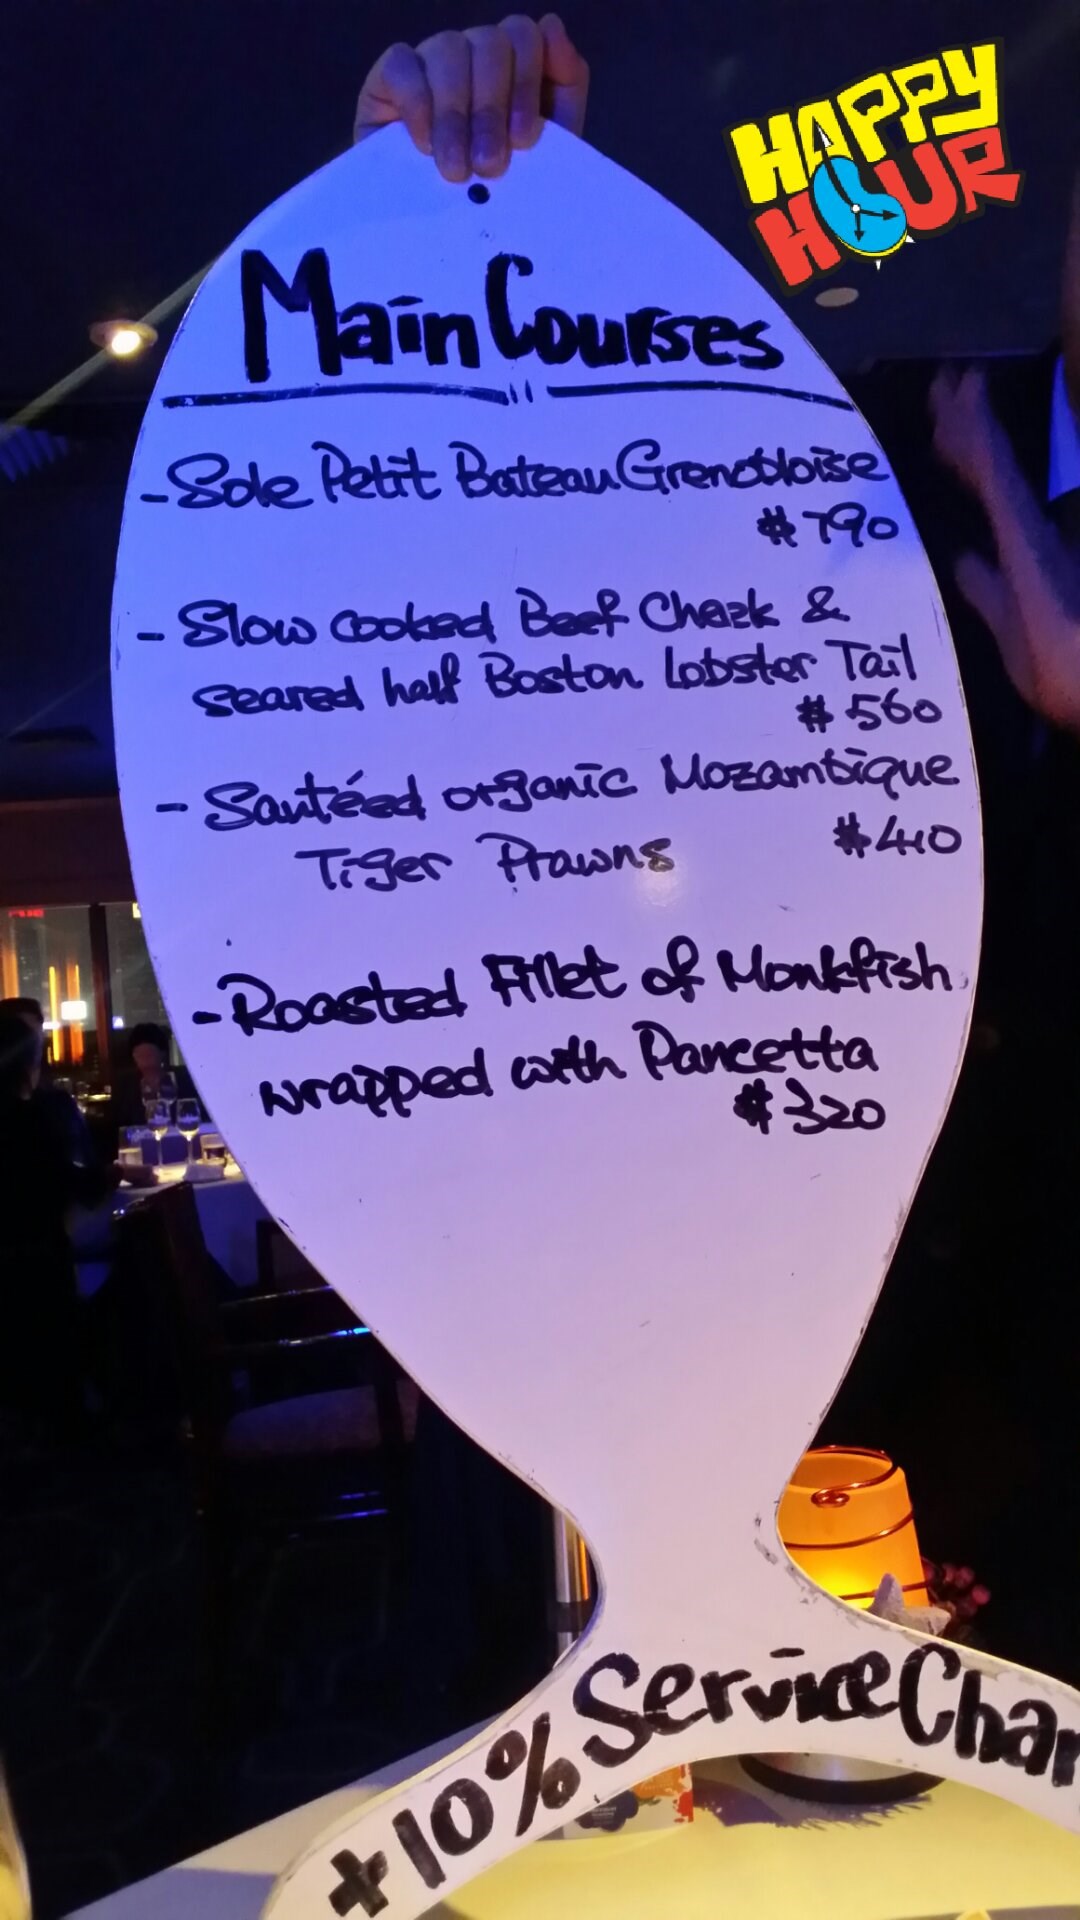 HAPPY
HOUR
Main Courses
- Sole Petit Bateau Grenobloise
$790
- Slow cooked Beef Cheek &
seared half Boston Lobster Tail
$560
- Sautéed organic Mozambique
Tiger Prawns $410
- Roasted Fillet of Monkfish
wrapped with Pancetta
$320
+10% Service Char